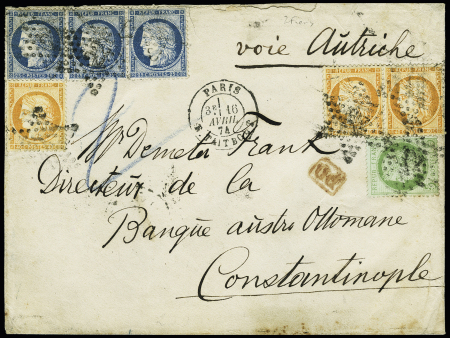 REPUB. FRANC. REPUB. FRANC. REPUB. FRANC.
voie Autriche
REPUB. FRANC.
REPUB. FRANC. REPUB. FRANC.
PARIS
3E 16
AVRIL
74
Mr Demeter Frank
PD
Directeur de la
Banque austro Ottomane
Constantinople